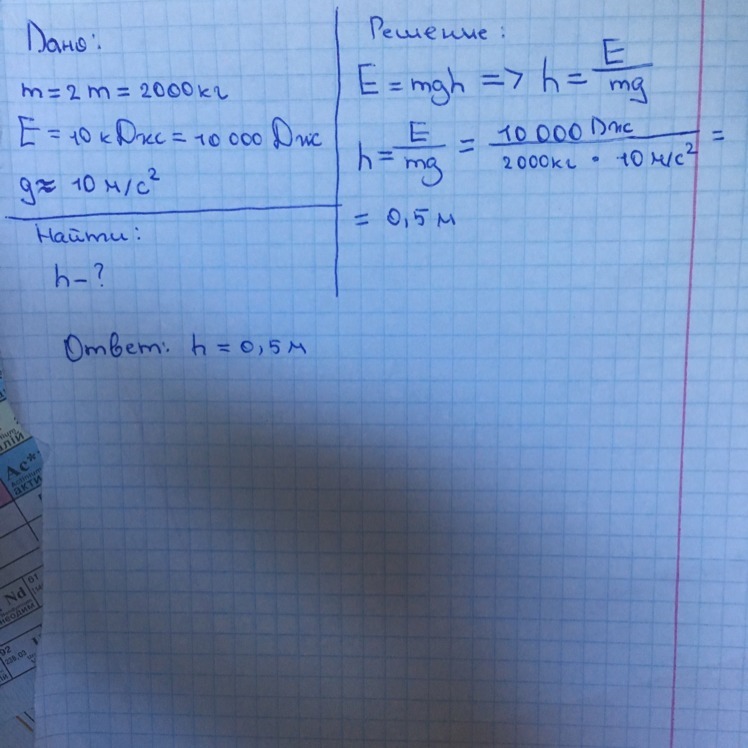 Дано:
m = 2 т = 2000 кг
E = 10 кДж = 10 000 Дж
g ≈ 10 м/с²
Найти:
h - ?
Решение:
E = mgh => h = E/mg
h = E/mg = 10 000 Дж/2000 кг · 10 м/с² =
= 0,5 м
Ответ: h = 0,5 м
лій
Ac**
акти
Nd
неодим
92